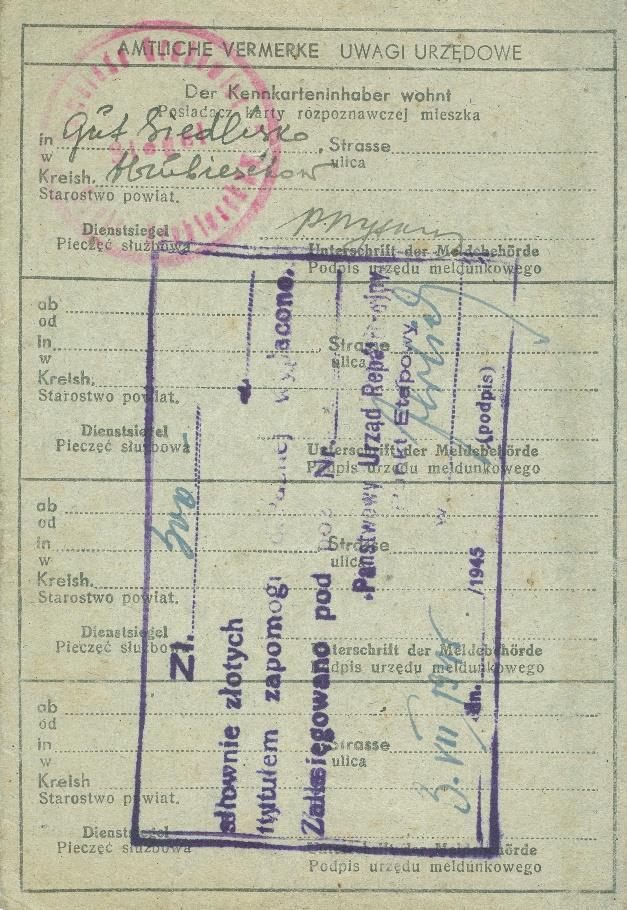 AMTLICHE VERMERKE UWAGI URZĘDOWE
Der Kennkarteninhaber wohnt
Posiadacz karty rozpoznawczej mieszka
in Gut Siedlisko, Strasse
w ulica
Kreish. Hrubieschow
Starostwo powiat.
Siegel
Dienstsiegel
Pieczęć służbowa
Unterschrift der Meldebehörde
Podpis urzędu meldunkowego
ab
od
in , Strasse
w ulica
Kreish.
Starostwo powiat.
Dienstsiegel
Pieczęć służbowa
Unterschrift der Meldebehörde
Podpis urzędu meldunkowego
ab
od
in Strasse
w ulica
Kreish.
Starostwo powiat.
Dienstsiegel
Pieczęć służbowa
Unterschrift der Meldebehörde
Podpis urzędu meldunkowego
ab
od
in Strasse
w ulica
Kreish
Starostwo powiat.
Dienstsiegel
Pieczęć służbowa
Unterschrift der Meldebehörde
Podpis urzędu meldunkowego
Zł.
słownie złotych
tytułem zapomogi wypłacono.
Zaksięgowano pod poz Nr.
Państwowy Urząd Repatriacyjny
Punkt Etapowy
w
dn. 3. VII 1945 /1945
(podpis)